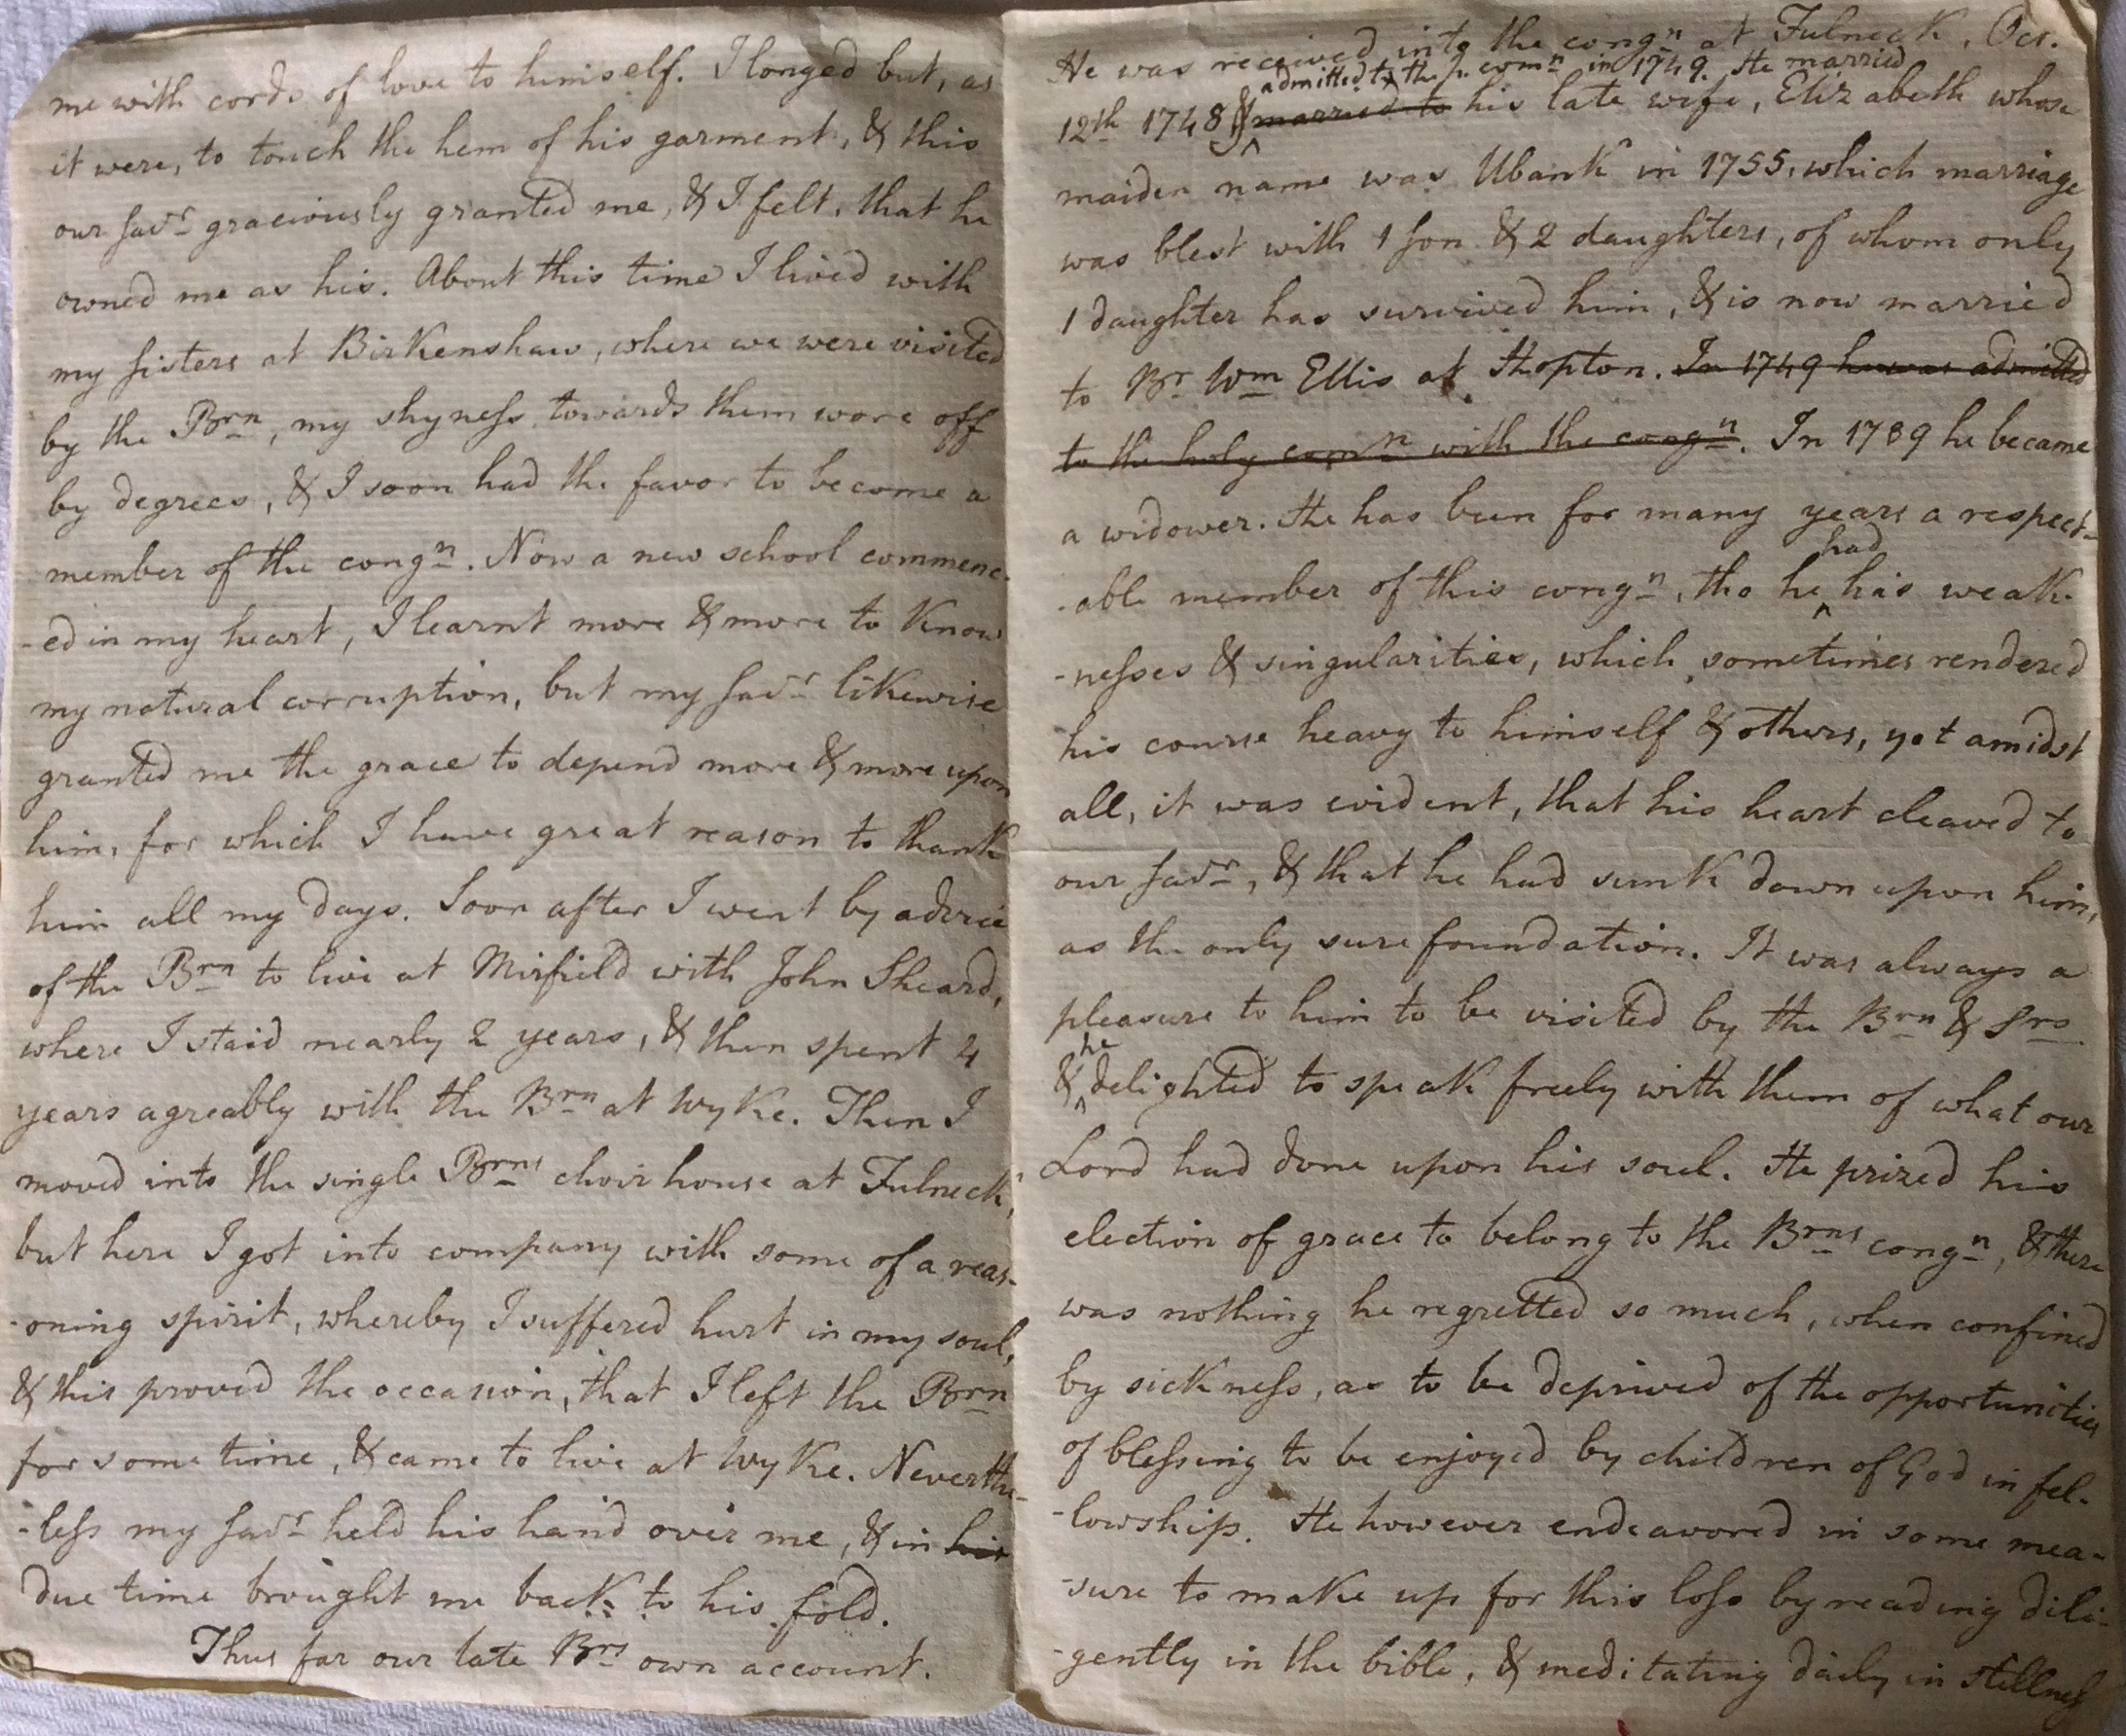 me with cords of love to himself. I longed but, as
it were, to touch the hem of his garment, & this
our Savr graciously granted me, & I felt, that he
owned me as his. About this time I lived with
my sisters at Birkenshaw, where we were visited
by the Brn, my shyness towards them wore off
by degrees, & I soon had the favor to become a
member of the congn. Now a new school commenc-
-ed in my heart, I learnt more & more to know
my natural corruption, but my Savr likewise
granted me the grace to depend more & more upon
him, for which I have great reason to thank
him all my days. Soon after I went by advice
of the Brn to live at Mirfield with John Sheard,
where I staid nearly 2 years, & then spent 4
years agreably with the Brn at Wyke. Then I
moved into the single Brns choir house at Fulneck,
but here I got into company with some of a reas-
-oning spirit, whereby I suffered hurt in my soul,
& this proved the occasion, that I left the Brn
for some time, & came to live at Wyke. Neverthe-
-less my Savr held his hand over me, & in his
due time brought me back to his fold.
Thus far our late Brs own account.
He was received into the congn at Fulneck, Oct.
admitted to the h. comn in 1749. He married
12th 1748 & married to his late wife, Elizabeth whose
maiden name was Ubank in 1755, which marriage
was blest with 1 son & 2 daughters, of whom only
1 daughter has survived him, & is now married
to Br Wm Ellis at Hopton. In 1749 he was admitted
to the holy comn with the congn. In 1789 he became
a widower. He has been for many years a respect-
had
-able member of this congn, tho he his weak-
-nesses & singularities, which sometimes rendered
his course heavy to himself & others, yet amidst
all, it was evident, that his heart cleaved to
our Savr, & that he had sunk down upon him,
as the only sure foundation. It was always a
pleasure to him to be visited by the Brn & Srs
he
& delighted to speak freely with them of what our
Lord had done upon his soul. He prized his
election of grace to belong to the Brns congn, & there
was nothing he regretted so much, when confined
by sickness, as to be deprived of the opportunities
of blessing to be enjoyed by children of God in fel-
-lowship. He however endeavored in some mea-
-sure to make up for this loss by reading dili-
-gently in the bible, & meditating daily in stillness